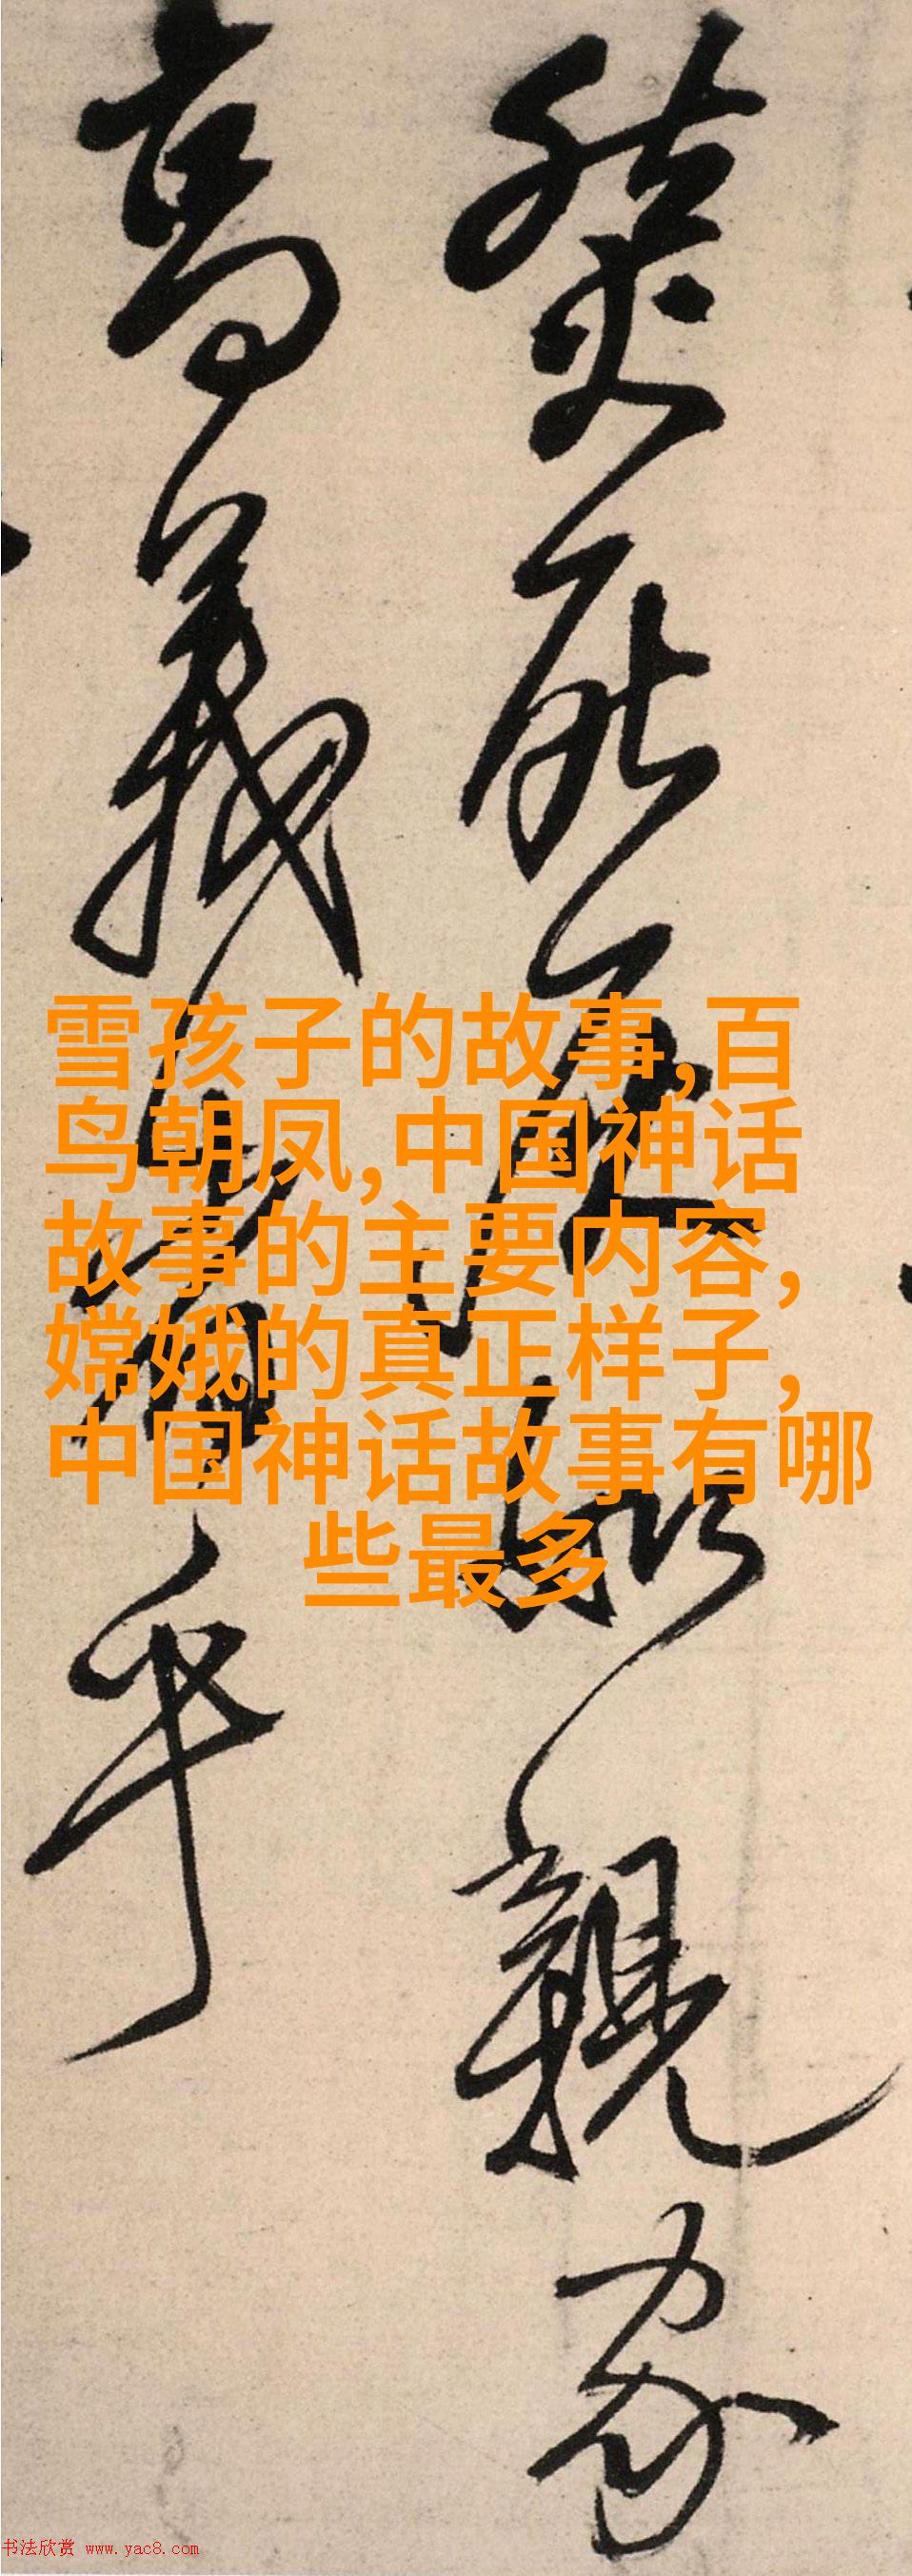 死親家
高義者乎
雪孩子的故事,百
鸟朝凤,中国神话
故事的主要内容,
嫦娥的真正样子,
中国神话故事有哪
些最多
书法欣赏 www.yac8.com